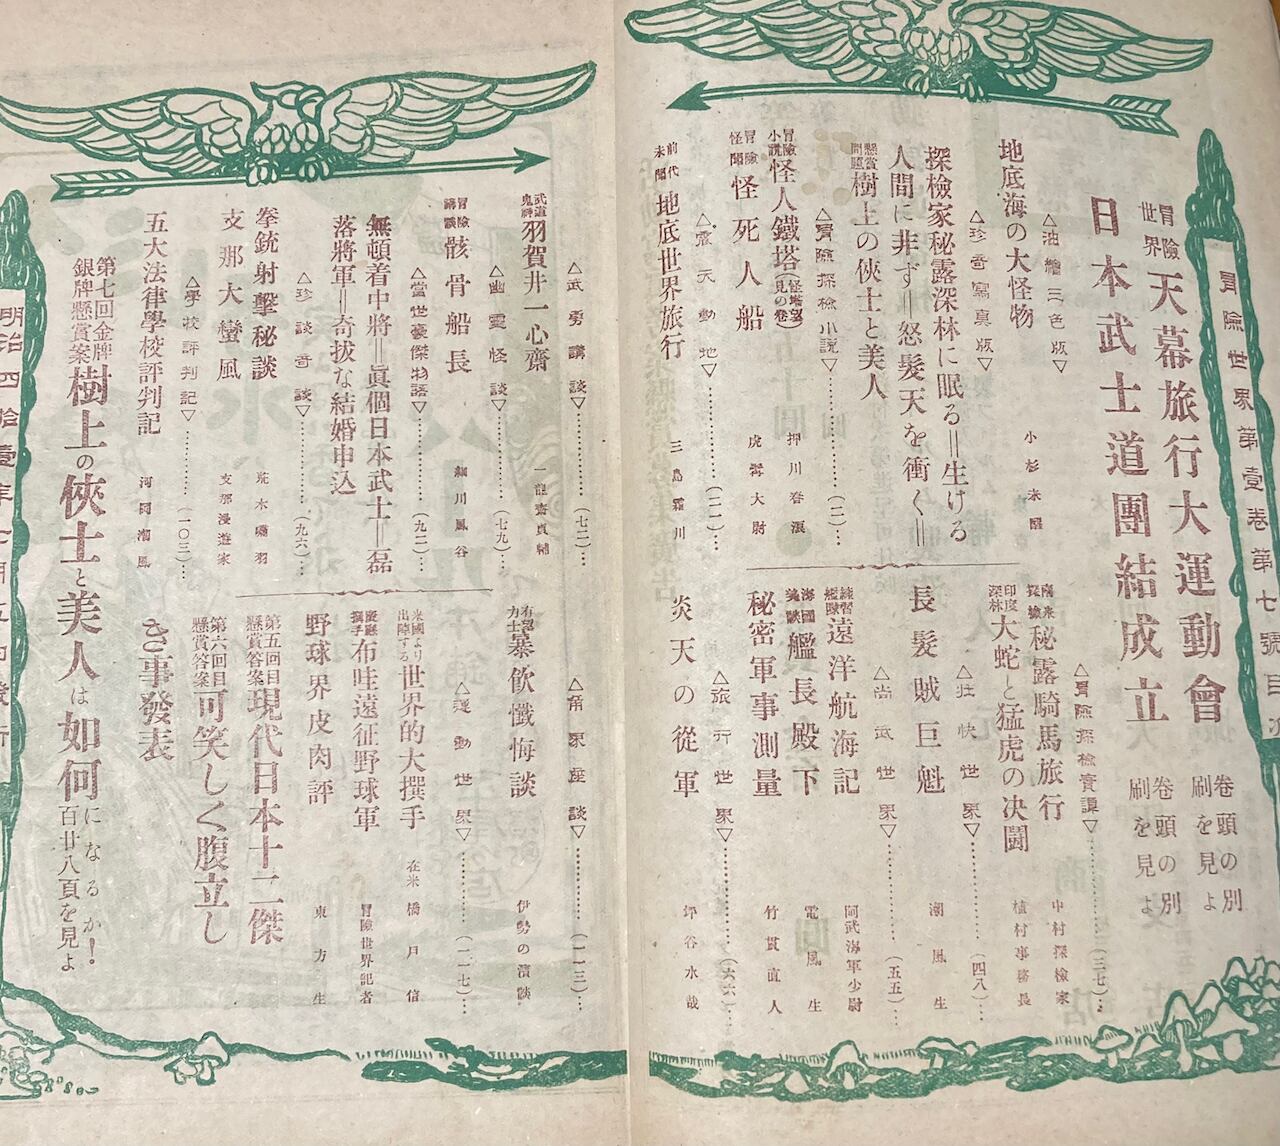 冒險世界第壹卷第七號目次
冒險世界 天幕旅行大運動會 卷頭の別刷を見よ
日本武士道團結成立 卷頭の別刷を見よ
△油繪三色版▽
地底海の大怪物 小杉未醒
△珍奇寫眞版▽
探檢家秘露深林に眠る＝生ける
人間に非ず＝怒髮天を衝く＝
懸賞問題 樹上の俠士と美人
△冒險探檢小説▽………(二)…
冒險小説 怪人鐵塔(怪塔望見の卷) 押川春浪
冒險怪聞 怪死人船 虎髯大尉
△震天動地▽………(二一)…
前代未聞 地底世界旅行 三島霜川
△冒險探檢實譚▽………(三七)…
南米探檢 秘露騎馬旅行 中村探檢家
印度深林 大蛇と猛虎の決鬪 植村事務長
△壯快世界▽………(四八)…
長髮賊巨魁 潮風生
△尚武世界▽………(五五)…
練習艦隊 遠洋航海記 阿武海軍少尉
海國美談 艦長殿下 電風生
秘密軍事測量 竹貫直人
△旅行世界▽………(六六)…
炎天の從軍 坪谷水哉
△武勇講談▽………(七二)…
武道鬼神 羽賀井一心齋 一龍齋貞輔
△幽靈怪談▽………(七九)…
冒險講談 骸骨船長 細川風谷
△當世豪傑物語▽………(九二)…
無頓着中將＝眞個日本武士＝磊
落將軍＝奇拔な結婚申込
△珍談奇談▽………(九六)…
拳銃射擊秘談 荒木嘯羽
支那大蠻風 支那漫遊家
△學校評判記▽………(一〇三)…
五大法律學校評判記 河岡潮風
△角界座談▽………(一一三)…
有望力士 暴飮懺悔談 伊勢の濱談
△運動世界▽………(一一七)…
米國より出陣する 世界的大撰手 在米 橋戸信
慶應撰手 布哇遠征野球軍 冒險世界記者
野球界皮肉評 東方生
第五回目懸賞答案 現代日本十二傑
第六回目懸賞答案 可笑しく腹立し
き事發表
第七回金牌銀牌懸賞案 樹上の俠士と美人は如何になるか！ 百廿八頁を見よ
明治四拾壹年七月五日發行